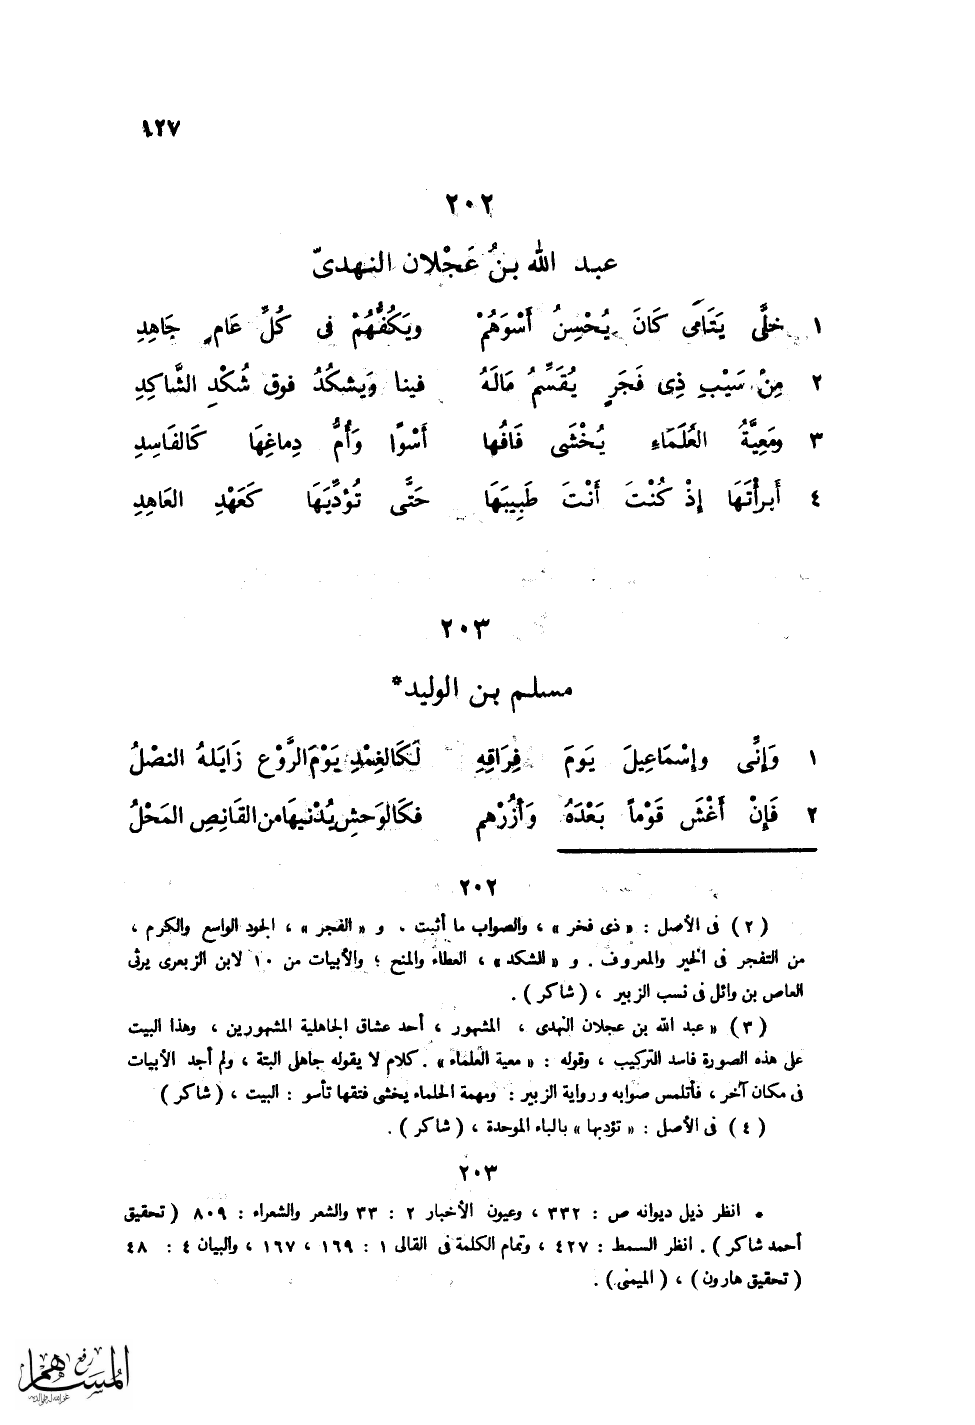 ١٢٧
٢٠٢
عبد الله بنُ عَجْلان النهدىّ
١ خلَّى يَتَامَى كَانَ يُحْسِنُ أَسْوَهُمْ ويَكُفُّهُمْ فى كُلِّ عَامٍ جَاهِدِ
٢ مِنْ سَيْبِ ذِى فَجَرٍ يُقَسِّمُ مَالَهُ فينا وَيشكُدُ فوق شُكْدِ الشَّاكِدِ
٣ ومَعِيَّةُ العُلَمَاءِ يُخْشَى فَافُها أَسْوًا وَأُمُّ دِماغِهَا كَالفَاسِدِ
٤ أَبرأْتَهَا إِذْ كُنْتَ أَنْتَ طَبِيبَهَا حَتَّى تُؤدِّيَهَا كَعَهْدِ العَاهِدِ
٢٠٣
مسلم بن الوليد*
١ وَإِنِّى وإِسْمَاعِيلَ يَوْمَ فِرَاقِهِ لَكَالغِمْدِ يَوْمَ الرَّوْعِ زَايَلهُ النصْلُ
٢ فَإِنْ أَغْشَ قَوْماً بَعْدَهُ وَأَزُرْهم فكَالوَحشِ يُدْنيهَا من القَانِصِ المَحْلُ
٢٠٢
(٢) فى الأصل : « ذى فخر » ، والصواب ما أثبت . و « الفجر » ، الجود الواسع والكرم ،
من التفجر فى الخير والمعروف . و « الشكد » ، العطاء والمنح ؛ والأبيات من ١٠ لابن الزبعرى يرثى
العاص بن وائل فى نسب الزبير ، ( شاكر ) .
(٣) « عبد الله بن عجلان النهدى ، المشهور ، أحد عشاق الجاهلية المشهورين ، وهذا البيت
على هذه الصورة فاسد التركيب ، وقوله : « معية العلماء » . كلام لا يقوله جاهلى البتة ، ولم أجد الأبيات
فى مكان آخر ، فأتلمس صوابه ورواية الزبير : ومهمة الحلماء يخشى فتقها تأسو : البيت ، ( شاكر )
(٤) فى الأصل : « تؤدبها » بالباء الموحدة ، ( شاكر ) .
٢٠٣
• انظر ذيل ديوانه ص : ٣٣٢ ، وعيون الأخبار ٢ : ٣٣ والشعر والشعراء : ٨٠٩ ( تحقيق
أحمد شاكر ) . انظر السمط : ٤٢٧ ، وتمام الكلمة فى القالى ١ : ١٦٩ ، ١٦٧ ، والبيان ٤ : ٤٨
( تحقيق هارون ) ، ( الميمنى ) .
رفع
المساهم